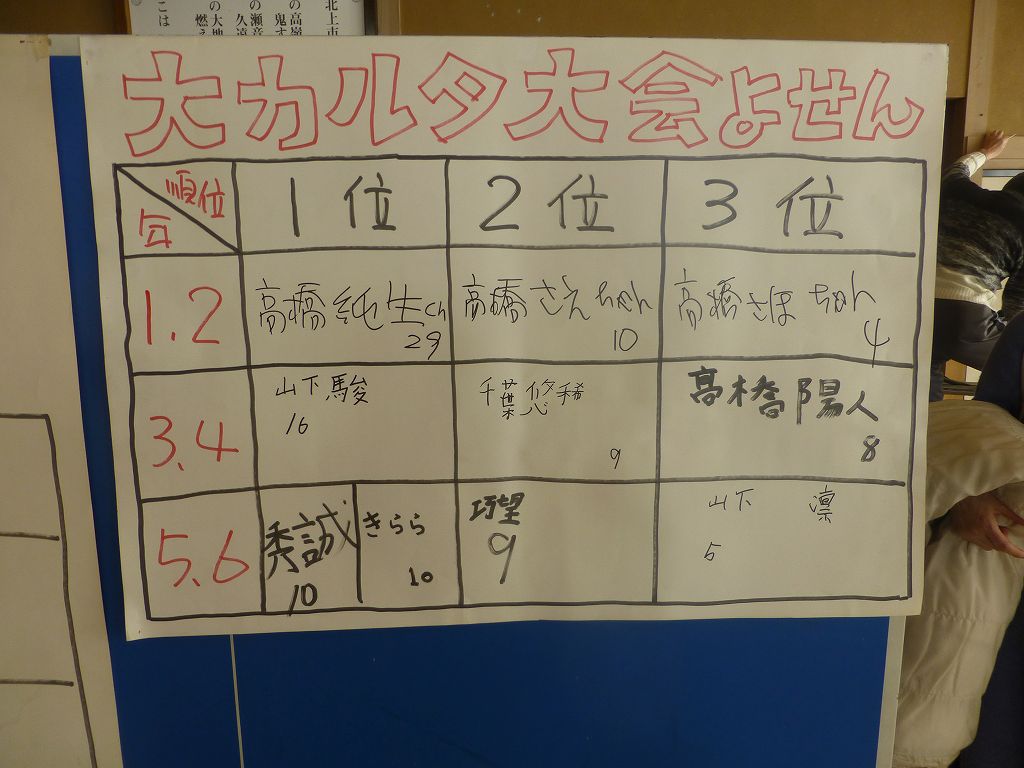 北上市
大カルタ大会よせん
順位
年
1位
2位
3位
1.2
高橋純生ch
29
高橋さえちゃん
10
高橋さほちゃん
4
3.4
山下駿
16
千葉悠稀
9
高橋陽人
8
5.6
秀誠
10
きらら
10
巧望
9
山下 凛
5